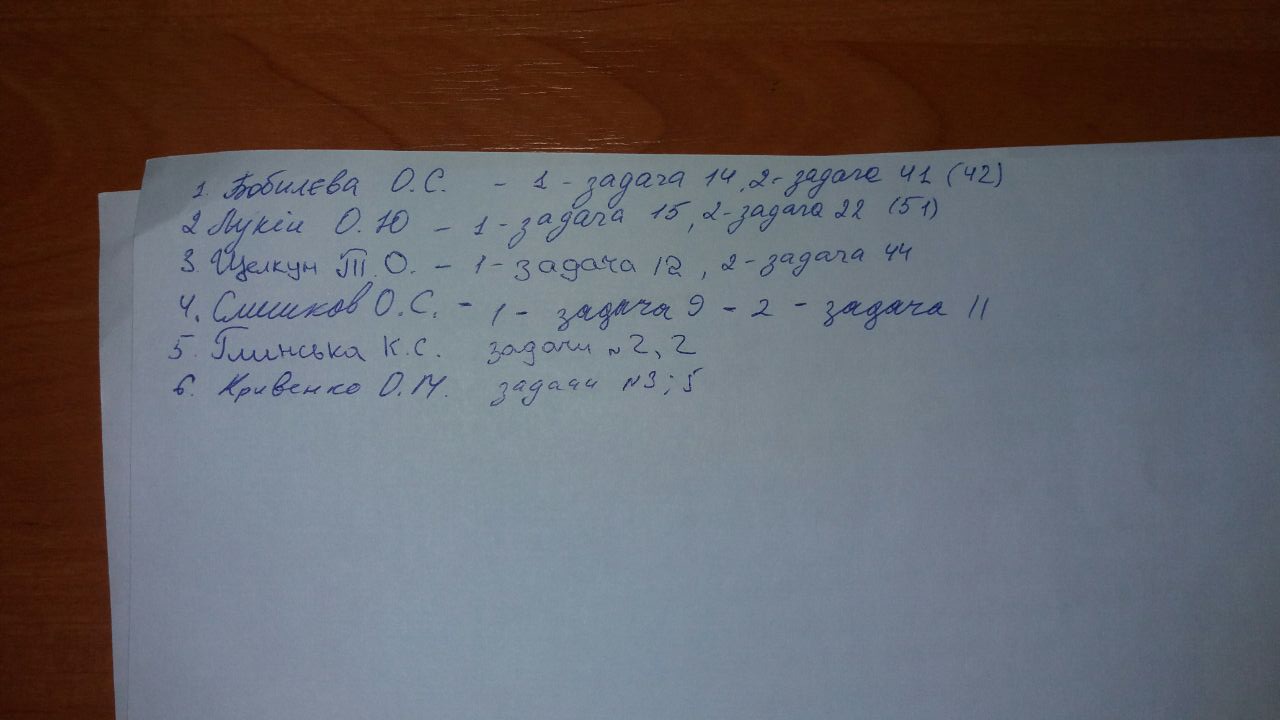 1. Бобилєва О.С. - 1 - задача 14, 2 - задача 41 (42)
2 Лукій О.Ю - 1 - задача 15, 2 - задача 22 (51)
3. Щелкун Т.О. - 1 - задача 12, 2 - задача 44
4. Слишков О.С. - 1 - задача 9 - 2 - задача 11
5. Глинська К.С. задачи №2, 2
6. Кривенко О.М. задачи №3; 5